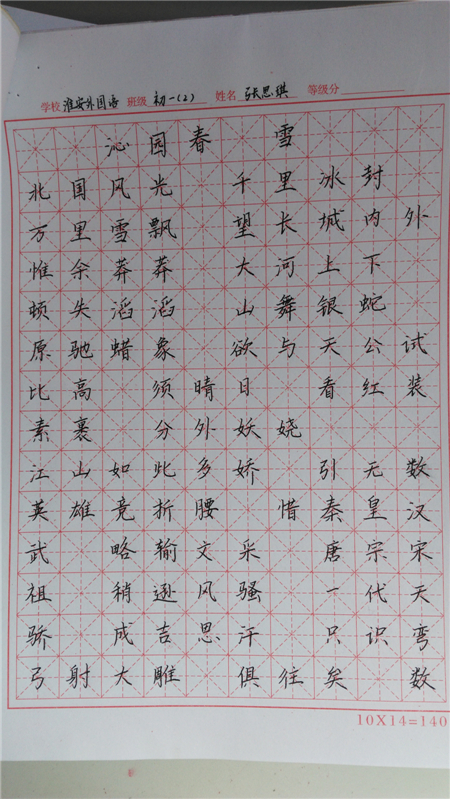 学校 淮安外国语 班级 初一(2) 姓名 张思琪 等级分
沁园春 雪
北国风光 千里冰封
万里雪飘 望长城内外
惟余莽莽 大河上下
顿失滔滔 山舞银蛇
原驰蜡象 欲与天公试
比高 须晴日 看红装
素裹 分外妖娆
江山如此多娇 引无数
英雄竞折腰 惜秦皇汉
武 略输文采 唐宗宋
祖 稍逊风骚 一代天
骄 成吉思汗 只识弯
弓射大雕 俱往矣 数
10X14=140